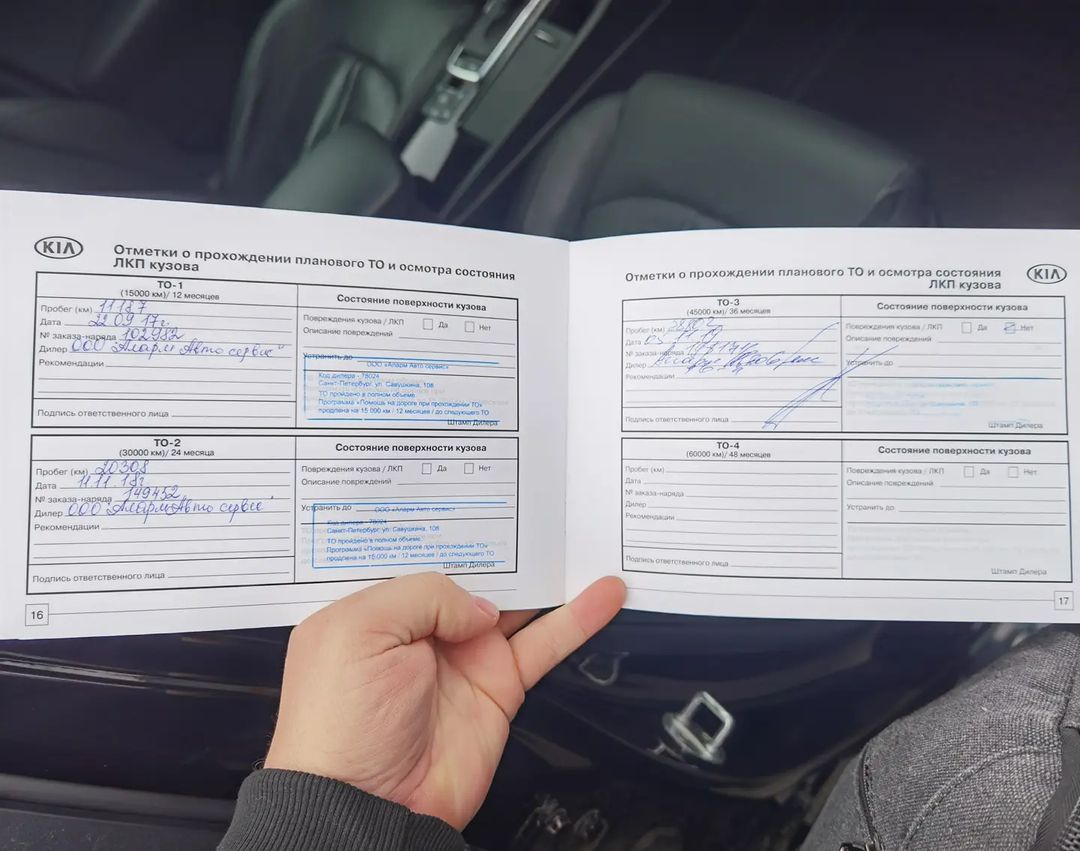 KIA
Отметки о прохождении планового ТО и осмотра состояния
ЛКП кузова
ТО-1
(15000 км)/ 12 месяцев
Пробег (км) 11187
Дата 22.09.17г.
№ заказа-наряда 102982
Дилер ООО "Аларм Авто сервис"
Рекомендации
Подпись ответственного лица
Состояние поверхности кузова
Повреждения кузова / ЛКП Да Нет
Описание повреждений
Устранить до
ООО «Аларм Авто сервис»
Код дилера - 78024
Санкт-Петербург, ул. Савушкина, 108
ТО пройдено в полном объеме.
Программа «Помощь на дороге при прохождении ТО»
продлена на 15 000 км / 12 месяцев / до следующего ТО
Штамп Дилера
ТО-2
(30000 км)/ 24 месяца
Пробег (км) 20308
Дата 11.11.18г.
№ заказа-наряда 149452
Дилер ООО "АлармАвто сервис"
Рекомендации
Подпись ответственного лица
Состояние поверхности кузова
Повреждения кузова / ЛКП Да Нет
Описание повреждений
Устранить до
ООО «Аларм Авто сервис»
Код дилера - 78024
Санкт-Петербург, ул. Савушкина, 108
ТО пройдено в полном объеме.
Программа «Помощь на дороге при прохождении ТО»
продлена на 15 000 км / 12 месяцев / до следующего ТО
Штамп Дилера
16
Отметки о прохождении планового ТО и осмотра состояния
ЛКП кузова
KIA
ТО-3
(45000 км)/ 36 месяцев
Пробег (км)
Дата
№ заказа-наряда
Дилер
Рекомендации
Подпись ответственного лица
Состояние поверхности кузова
Повреждения кузова / ЛКП Да Нет
Описание повреждений
Устранить до
Штамп Дилера
ТО-4
(60000 км)/ 48 месяцев
Пробег (км)
Дата
№ заказа-наряда
Дилер
Рекомендации
Подпись ответственного лица
Состояние поверхности кузова
Повреждения кузова / ЛКП Да Нет
Описание повреждений
Устранить до
Штамп Дилера
17